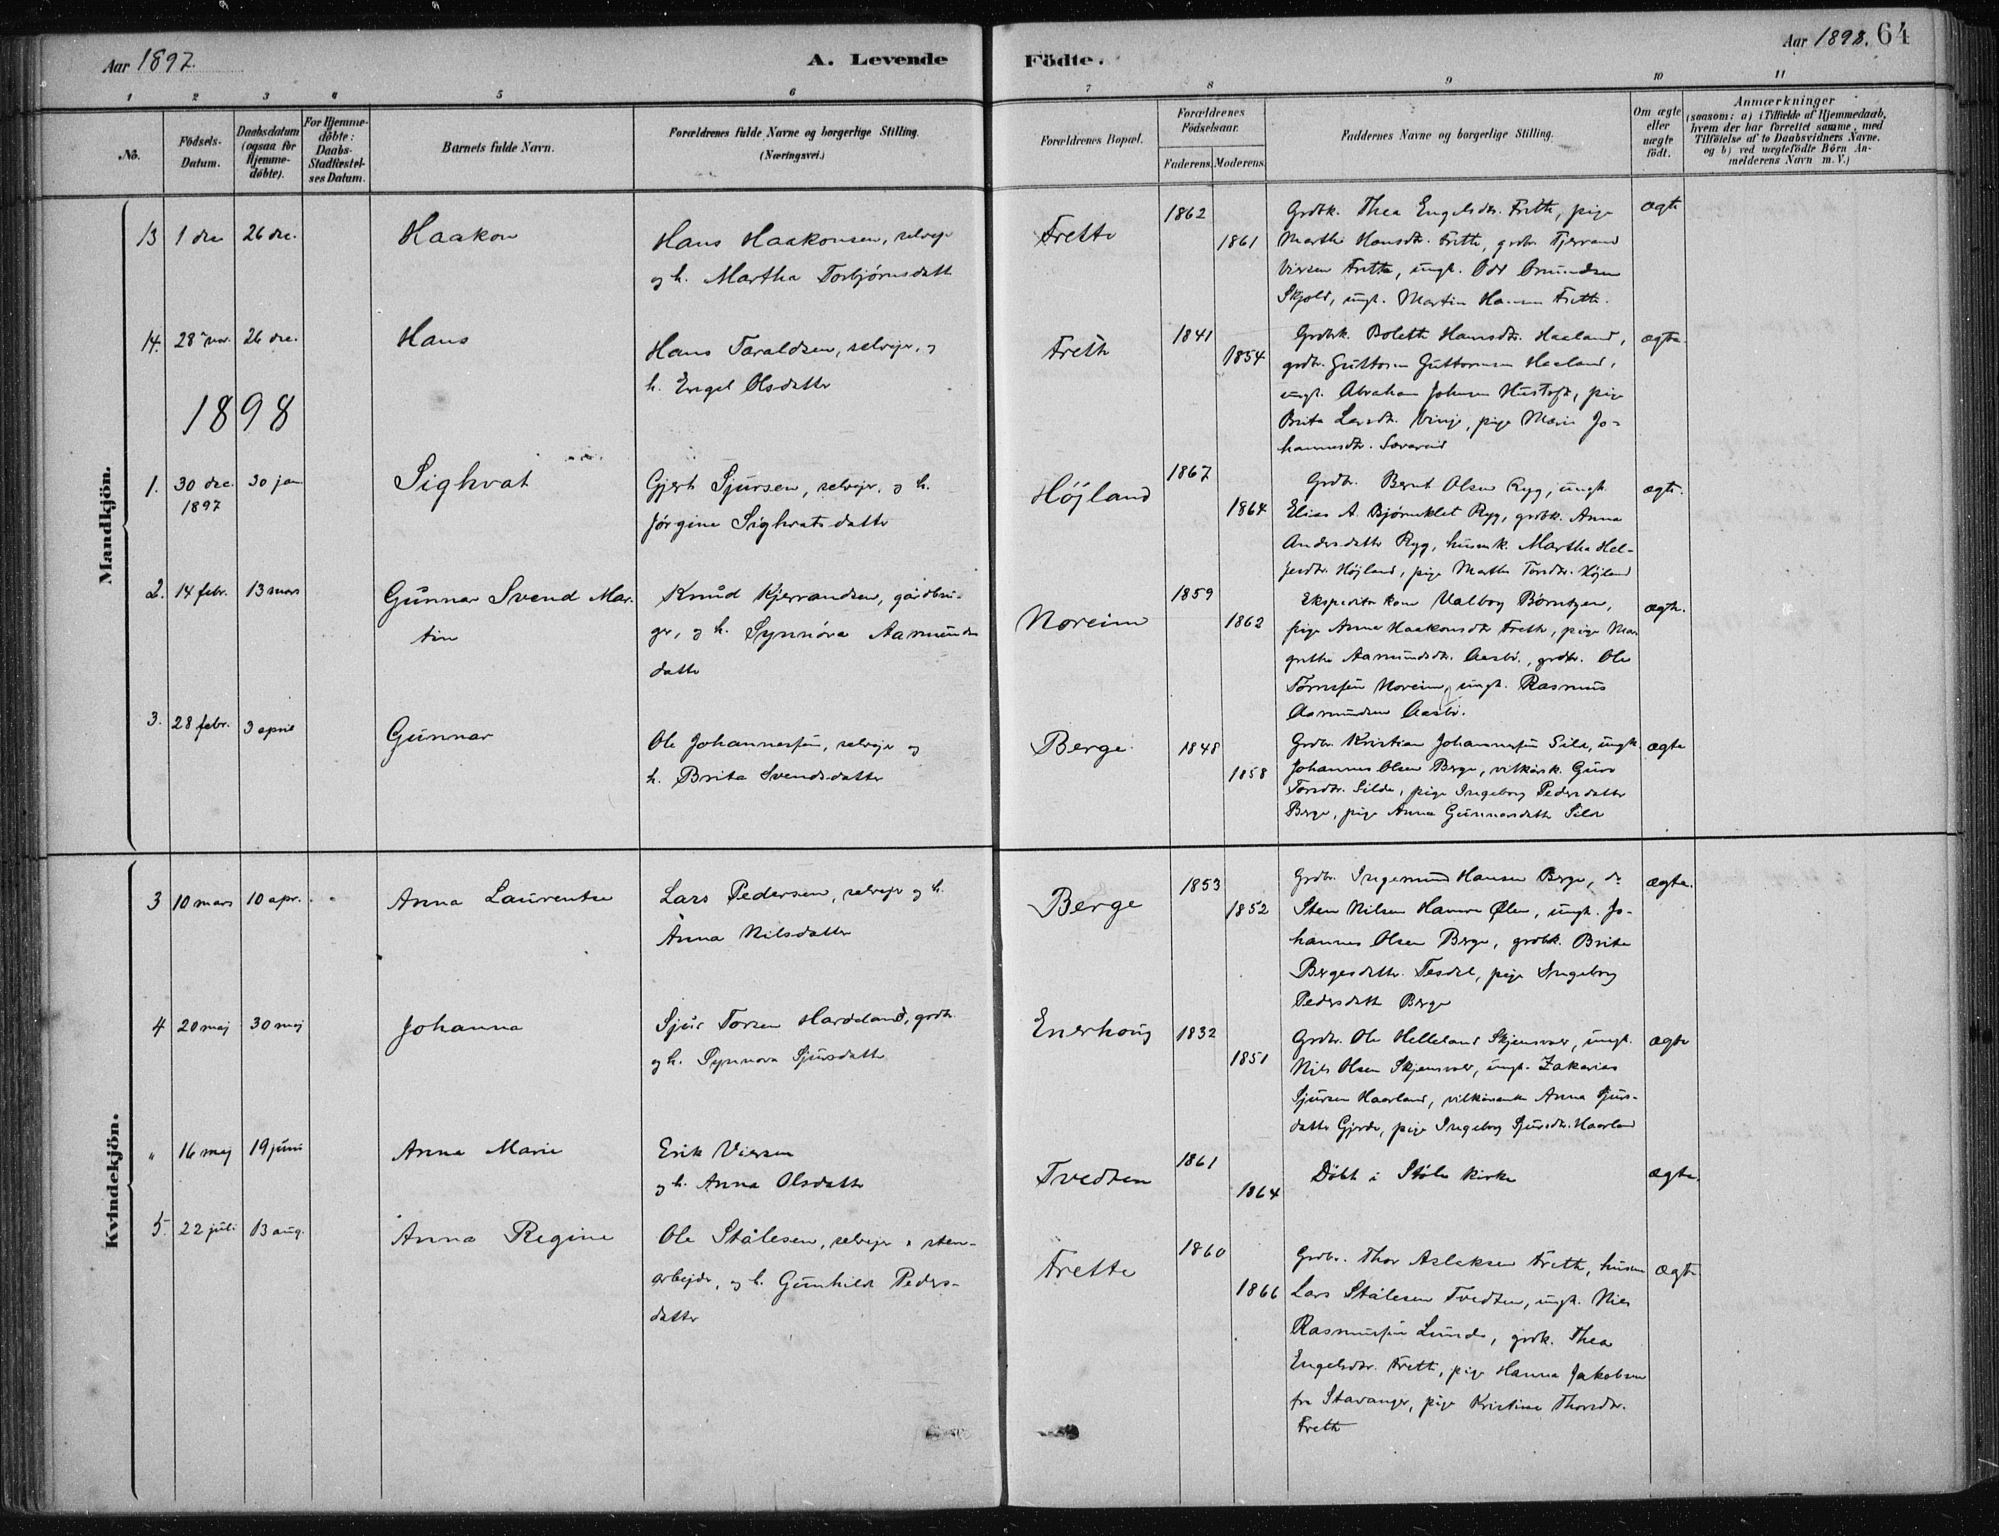 Aar 1897.
A. Levende
Födte.
Aar 1898. 64
1 2 3 4 5 6 7 8 9 10 11
No.
Födsels-
Datum.
Daabsdatum
(ogsaa for
Hjemme-
döbte).
For Hjemme-
döbte:
Daabs-
Stadfæstel-
ses Datum.
Barnets fulde Navn.
Forældrenes fulde Navne og borgerlige Stilling.
(Næringsvei.)
Forældrenes Bopæl.
Forældrenes
Födselsaar.
Faderens. Moderens.
Faddernes Navne og borgerlige Stilling.
Om ægte
eller
uægte
födt.
Anmærkninger
(saasom: a) i Tilfælde af Hjemmedaab,
hvem der har forrettet samme, med
Tilföielse af to Daabsvidners Navne.
og b) ved uægtefödte Börn An-
melderens Navn m. V.)
Mandkjön.
13 1 dec 26 dec. Haakon
Hans Haakonsen, selvejer
og h. Martha Torbjørnsdatte
Frette 1862 1861
Grdbk. Thea Engelsdtr. Frette, pige
Marthe Hansdtr. Frette, grdbr. Tjerrand
Viersen Frette, ungk. Odd Omundsen
Skjold, ungk. Martin Hansen Frette.
ægte
14. 28 nov. 26 dec. Hans
Hans Taraldsen, selvejer, og
h. Engel Olsdatter
Frette 1841 1854
Grdbk. Bolette Hansdtr. Haaland,
grdbr. Guttorm Guttormsen Haaland,
ungk. Abraham Johnsen Hustoft, pige
Brita Larsdtr. Vinje, pige Marie Jo-
hannesdtr. Sævareid
ægte.
1898
1. 30 dec. 1897 30 jan Sighvat
Gjert Sjursen, selvejer, og h.
Jørgine Sighvatsdatter
Höjland 1867 1864
Grdbr. Bernt Olsen Ryg, ungk.
Elias A. Bjørneklet Ryg, grdbk. Anna
Andersdatter Ryg, husmk. Martha Hel-
jesdtr. Höjland, pige Marthe Torsdtr. Höjland
ægte.
2. 14 febr. 13 mars Gunnar Svend Mar-
tin
Knud Kjerrandsen, gårdbru-
ger, og h. Synnöve Aamunds
datter
Noreim 1859 1862
Ekspeditør kone Valborg Børntzen,
pige Anna Haakonsdtr Frette, pige Mar
grethe Aamundsdtr. Aasbö, grdbr. Ole
Tormesen Noreim, ungk. Rasmus
Aamundsen Aasbö.
ægte.
3. 28 febr. 3 april Gunnar
Ole Johannessen, selvejer og
h. Brita Svendsdatter
Berge 1848 1858
Grdbr. Kristian Johannessen Silde, ungk.
Johannes Olsen Berge, vilkårsk. Guro
Torsdtr. Silde, pige Ingeborg Pedersdatter
Berge, pige Anna Gunnarsdatte Silde
ægte
Kvindekjön.
3 10 mars 10 apr. Anna Laurentse
Lars Pedersen, selvejer og h.
Anna Nilsdatter
Berge 1853 1852
Grdbr. Ingemund Hansen Berge, do
Sten Nilsen Hamre Ølen, ungk. Jo-
hannes Olsen Berge, grdbk. Brita
Bergesdattr. Tesdal, pige Ingeborg
Pedersdatte Berge
ægte.
4 20 maj 30 maj Johanna
Sjur Torsen Hardeland, grdbr.
og h. Synnøva Sjursdatte
Enerhoug 1832 1851
Grdbr. Ole Helleland Skjensvold, ungk.
Nils Olsen Skjensvold, ungk. Zakarias
Sjursen Haarland, vilkårsenke Anna Sjurs-
datte Gjerde, pige Ingeborg Sjursdtr. Haarland
ægte
" 16 maj 19 juni Anna Marie
Erik Viersen
og h. Anna Olsdatte
Tvedten 1861 1864
Döbt i Stöle kirke
ægte.
5. 22 juli 13 aug. Anna Regine
Ole Stålesen, selvejer & sten-
arbejder, og h. Gunhilde Peders-
datter
Frette 1860 1866
Grdbr. Thor Aslaksen Frette, husm
Lars Stålesen Tvedten, ungk. Nils
Rasmussen Lunde, grdk. Thea
Engelsdtr. Frette, pige Hanna Jakobsen
fra Stavanger, pige Kristine Thorsdtr.
Frette
ægte